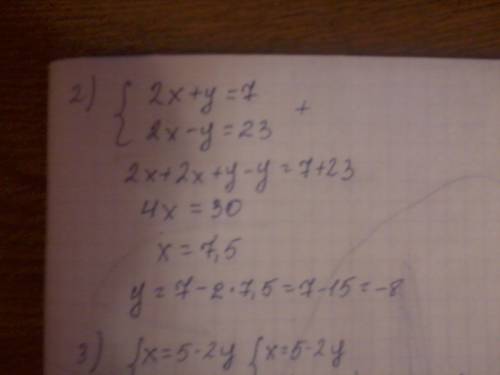 2) { 2x+y=7
2x-y=23 +
2x+2x+y-y=7+23
4x=30
x=7,5
y=7-2·7,5=7-15=-8
3) {x=5-2y {x=5-2y